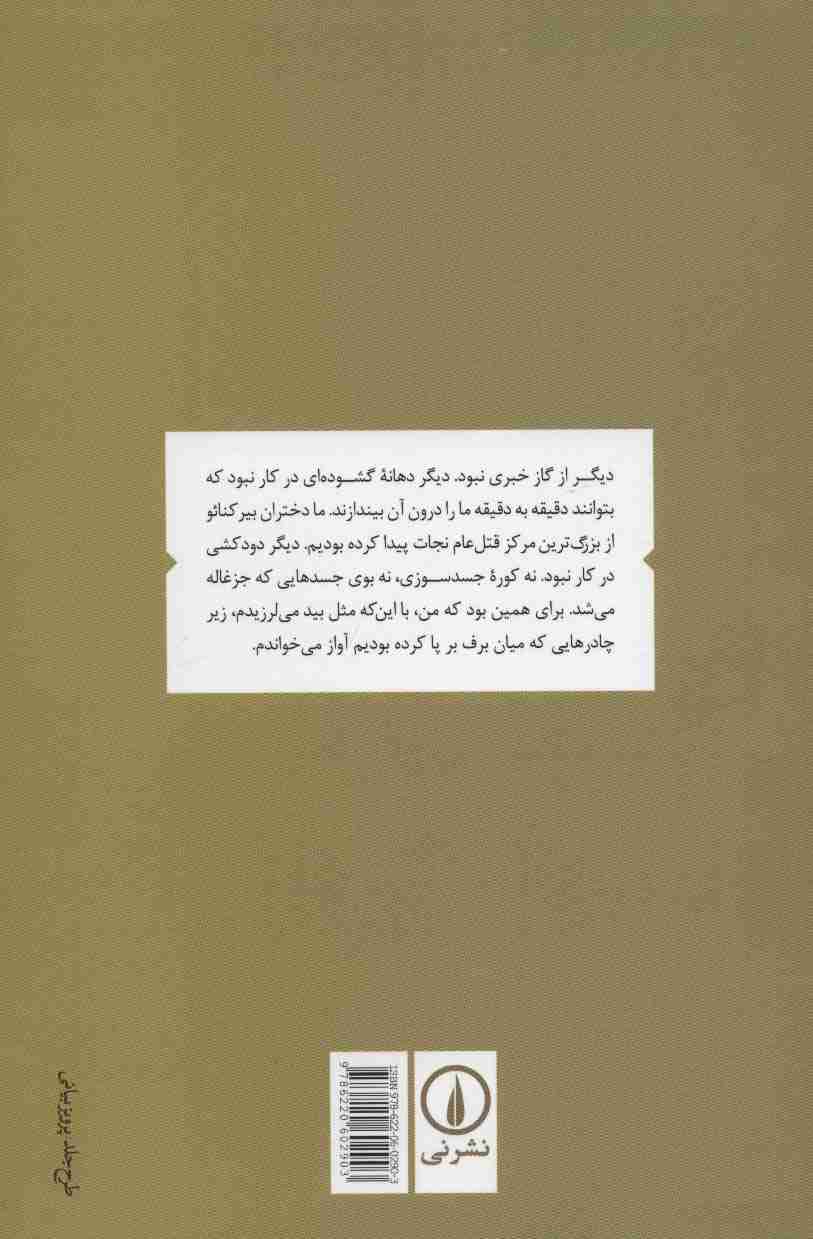 دیگر از گاز خبری نبود. دیگر دهانهٔ گشوده‌ای در کار نبود که
بتوانند دقیقه به دقیقه ما را درون آن بیندازند. ما دختران بیرکنائو
از بزرگ‌ترین مرکز قتل‌عام نجات پیدا کرده بودیم. دیگر دودکشی
در کار نبود. نه کورهٔ جسدسوزی، نه بوی جسدهایی که جزغاله
می‌شد. برای همین بود که من، با این‌که مثل بید می‌لرزیدم، زیر
چادرهایی که میان برف بر پا کرده بودیم آواز می‌خواندم.
نشر نی
ISBN 978-622-06-0290-3
9786220602903
طرح جلد: پرویز بیانی